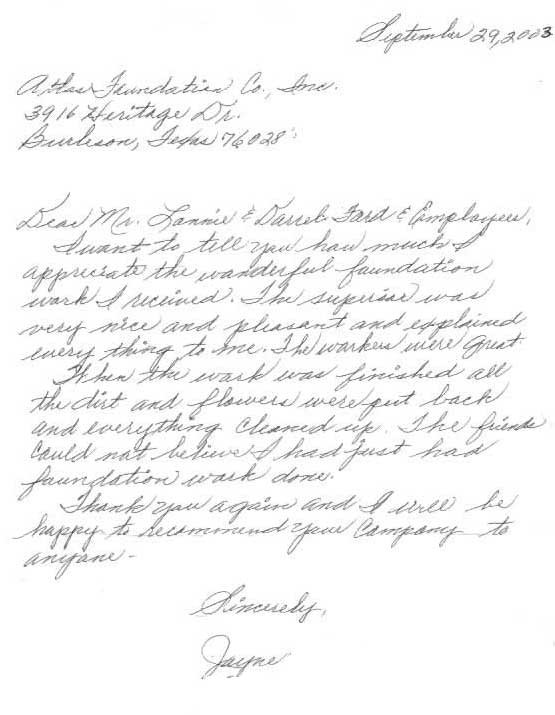 September 29, 2003
Atlas Foundation Co., Inc.
3916 Heritage Dr.
Burleson, Texas 76028
Dear Mr. Lonnie & Darrel Ford & Employees,
I want to tell you how much I
appreciate the wonderful foundation
work I received. The superisor was
very nice and pleasant and explained
every thing to me. The workers were great.
When the work was finished all
the dirt and flowers were put back
and everything cleaned up. The friends
could not believe I had just had
foundation work done.
Thank you again and I will be
happy to recommend your Company to
anyone -
Sincerely,
Jayne